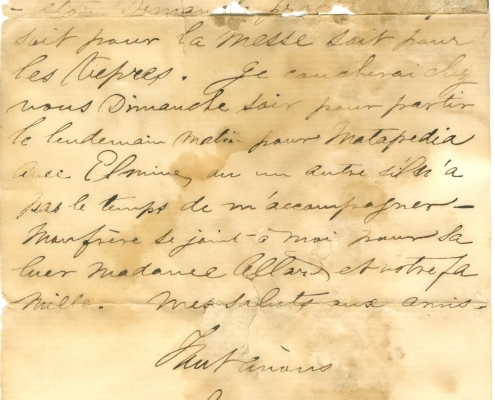 Dimanche
soit pour la messe soit pour
les Vepres. Je coucherai chez
vous Dimanche soir pour partir
le lendemain matin pour Matapedia
avec Elmine, ou un autre s'il n'a
pas le temps de m'accompagner -
Mon frère se joint à moi pour sa
luer madame Allard et votre fa
mille. Mes saluts aux amis -
Tout à vous